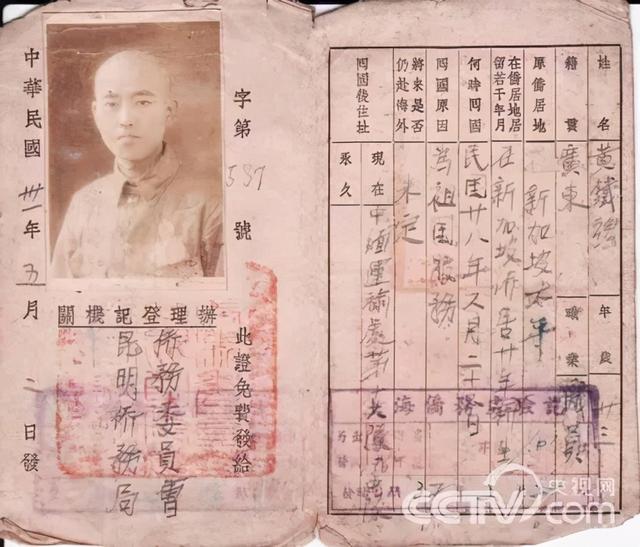 姓名 黄鐵強 年歲 卅三
籍貫 廣東 職業
原僑居地 新加坡太平
在僑居地居留若干年月 在新加坡僑居廿年
何時回國 民國廿八年 月二十 日
回國原因 為祖國服務
將來是否仍赴海外 未定
回國後住址 現在 中緬運輸處第 大隊 中隊
永久
字第537號
此證免費發給
辦理登記機關
僑務委員會
昆明僑務局
中華民國卅一年五月二日發
央视网
CCTV.com